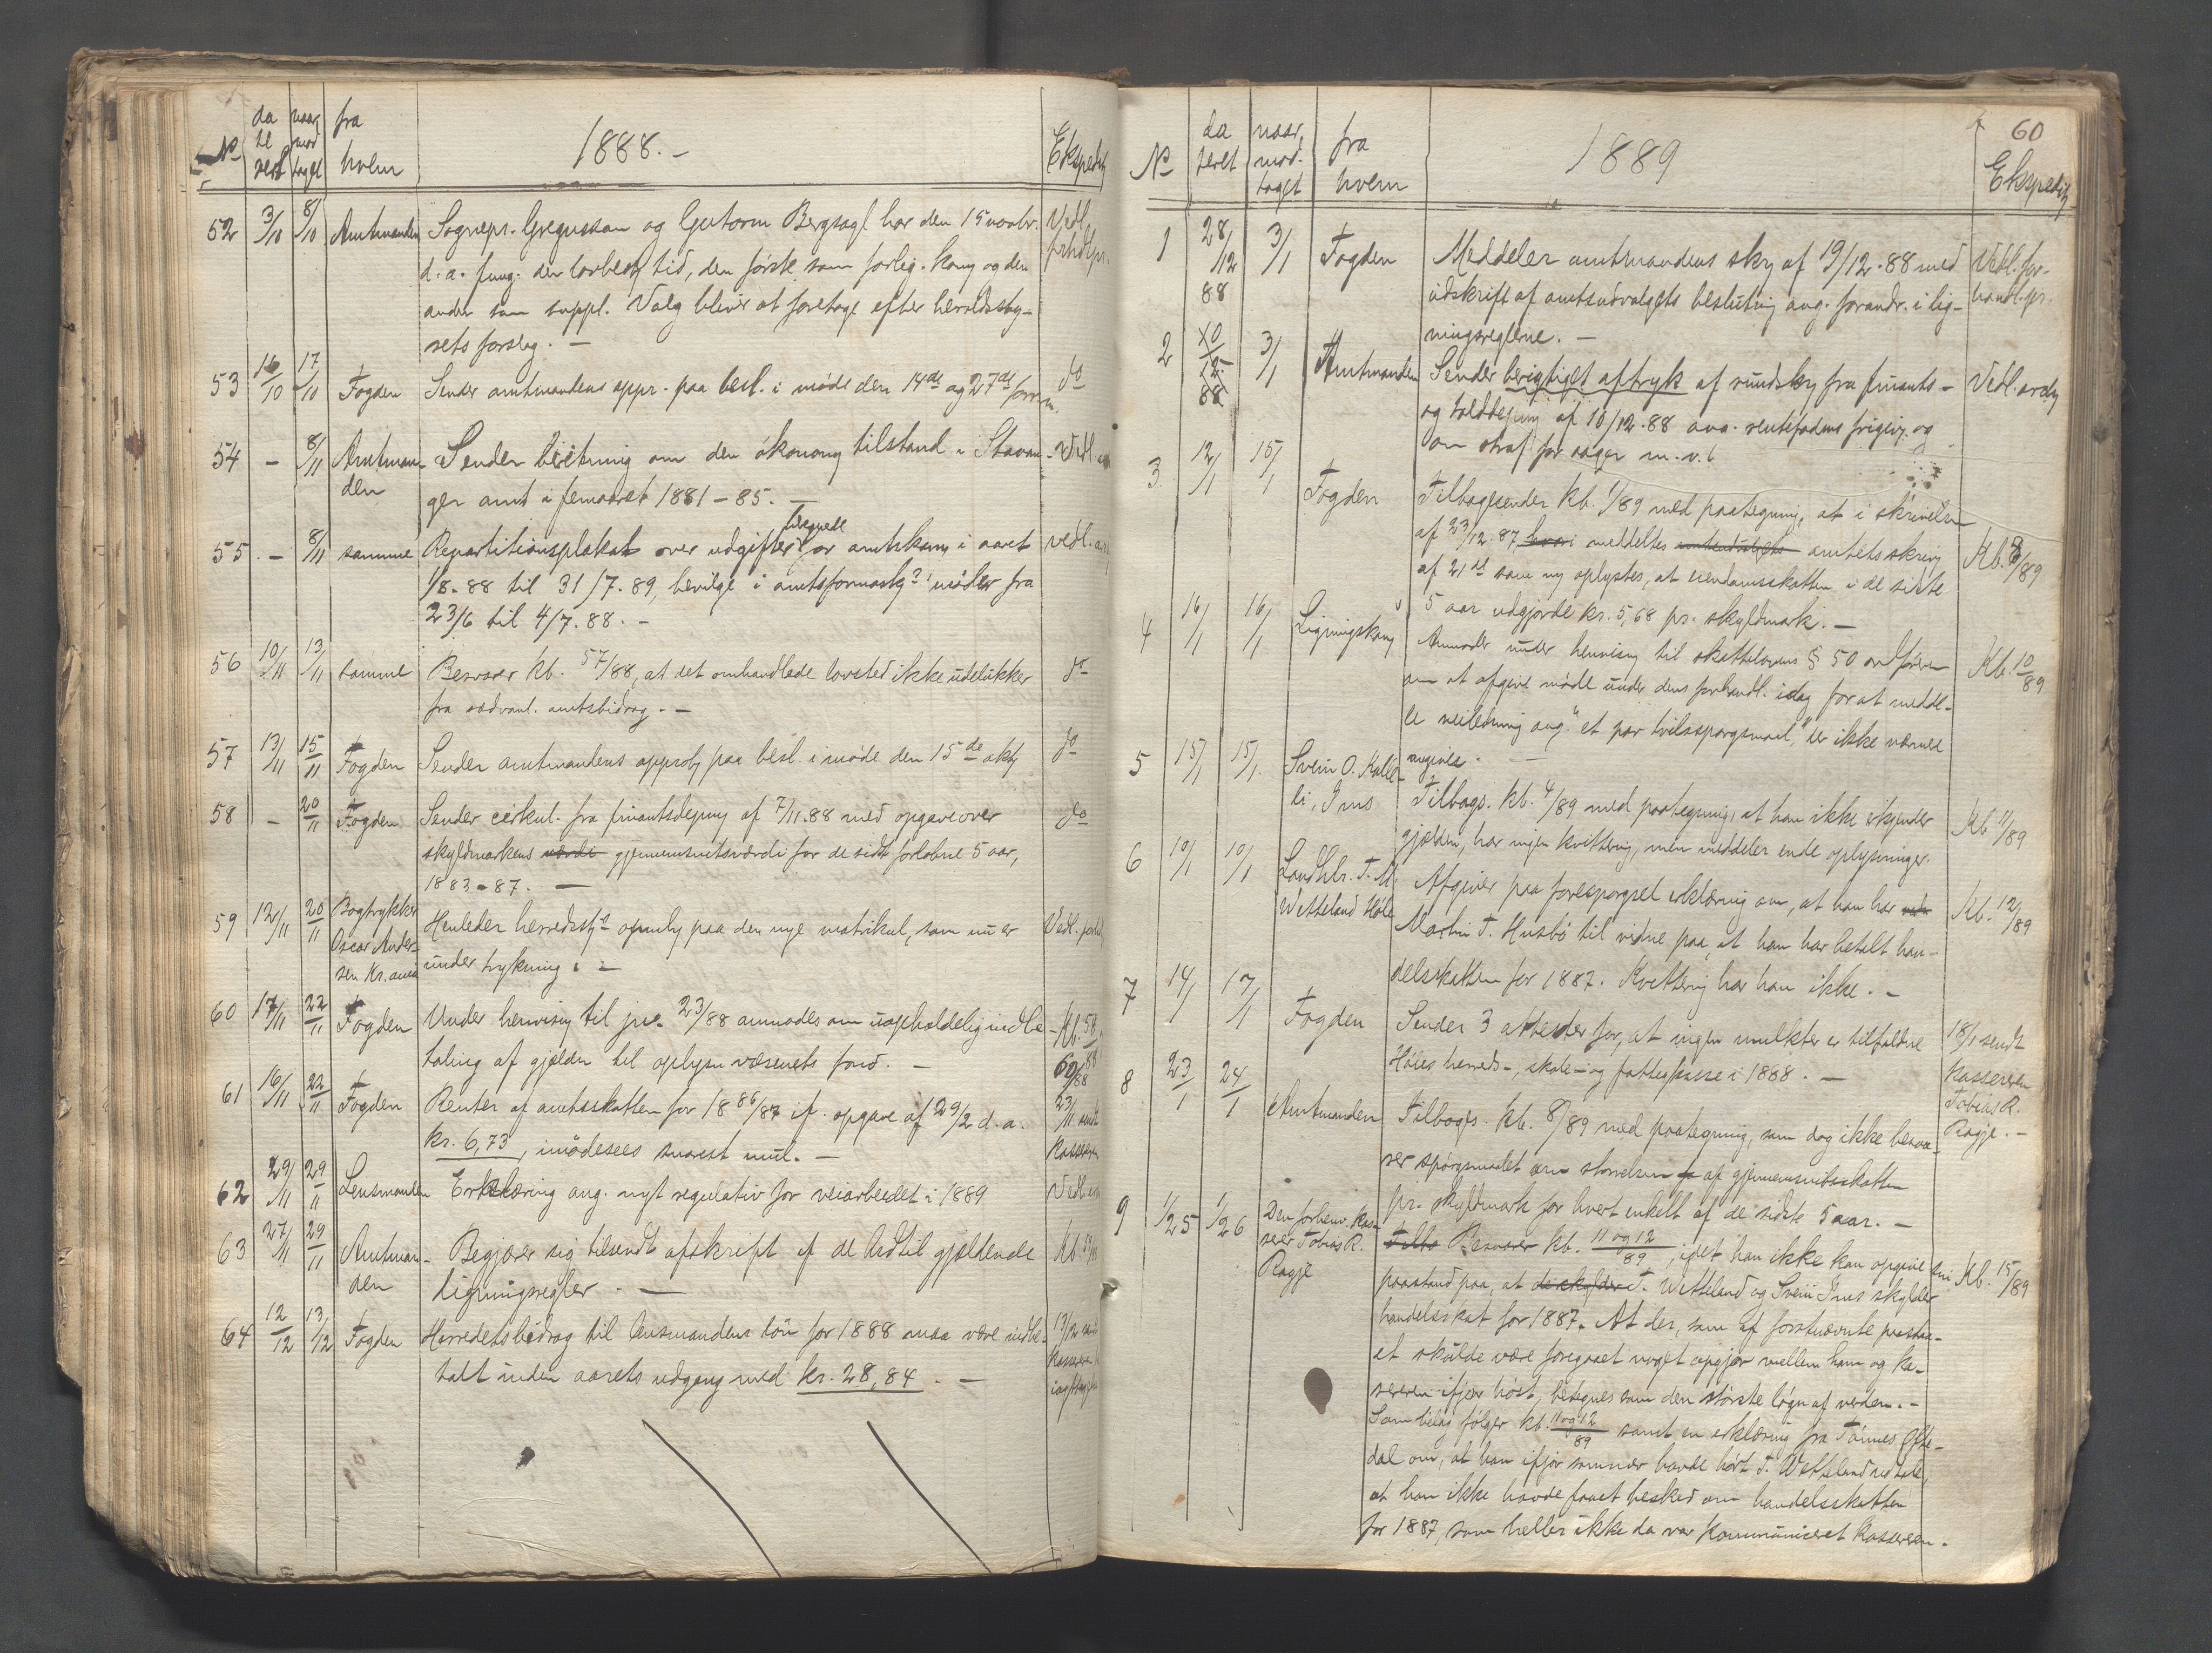 No
da
te
ret
naar
mod
taget
fra
hvem
1888. –
Ekspedit
52 3/10 8/10 Amtmanden Sognepr. og Gutorm Bergsagl har den 15 novbr.
d. a. fung. den lovbest tid, den første som forlig. kom og den
anden som suppl. Valg bliver at foretage efter herredssty-
rets forslag. –
53 16/10 17/10 Fogden Sender amtmandens appr. paa besl. i møde den 14de og 27de
do
54 – 8/11 Amtman- Sender beretning om den økonom tilstand i Stavan- Vedl.
den ger amt i femaaret 1881–85. –
beregnede
55. – 8/11 samme Repartitionsplakat over udgifter for amtskom i aaret vedl.
1/8.-88 til 31/7.89, bevilge i amtsformsk møder fra
23/6 til 4/7.88. –
56 10/11 13/11 samme Besvarer kb. 57/88, at det omhandlede lovsted ikke udelukker do
fra sædvanl. amtsbidrag. –
57 13/11 15/11 Fogden Sender amtmandens approb paa besl. i møde den 15de okt do
58 – 20/11 Fogden Sender cirkul. fra finantsdepmg af 7/11.88 med opgave over do
skyldmarkens værdi gjennemsnitsværdi for de sidst forløbne 5 aar,
1883–87. –
59 12/11 20/11 Bogtrykker Henleder herredsst opmhg paa den nye matrikul, som nu er Vedl.
Oscar Ander-
sen Kr.ania under trykning. –
60 17/11 22/11 Fogden Under henvisng til jnr. 23/88 anmodes om uopholdelig indbe- Kb. 58
taling af gjælden til oplysn væsenets fond. – 60/88
61 16/11 22/11 Fogden Renter af amtsskatten for 1886/87 if. opgave af 29/2 d. a. 23/11 sendt
kr. 6,73, imødesees snarest mul. – Kassereren
62 29/11 29/11 Lensmanden Erklæring ang. nyt regulativ for veiarbeidet i 1889 Vedl.
63 27/11 29/11 Amtman- Begjærer sig tilsendt afskrift af de hidtil gjældende Kb.
den ligningsregler. –
64 12/12 13/12 Fogden Herredets bidrag til lensmandens løn for 1888 maa være indbe- 13/12
talt inden aarets udgang med kr. 28,84. – Kassereren
60
No
da
teret
naar
mod-
taget
fra
hvem
1889
Ekspedit
1 28/12 88 3/1 Fogden Meddeler amtmandens skr af 19/12.88 med Vedl. for-
udskrift af amtsudvalgets beslutning ang. forandr. i lig- handl.pr.
ningsreglerne. –
2 10/12 88 3/1 Amtmanden Sender berigtiget aftryk af rundskr fra finants- Vedl.
og tolddepmg af 10/12.88 ang. rentefodens frigivg. og
om straf for aager m. v. l
3 12/1 15/1 Fogden Tilbagesender kb. 1/89 med paategning, at i skrivelse
af 23/12.87 hvori meddeltes amtets skriv Kb. 8/89
af 21de som ny oplystes, at eiendomsskatten i de sidste
5 aar udgjorde kr. 5,68 pr. skyldmark. –
4 16/1 16/1 Ligningskom Anmoder under henvisng til skatteloven § 50 ordføreren Kb. 10/89
om at afgive møde under dens forhandl. idag for at medde-
le veiledning ang. "et par tvilsspørgsmaal", der ikke nærmere
angives. –
5 15/1 15/1 Svein O. Kalle- Tilbags. kb. 4/89 med paategning, at han ikke erkjender Kb 11/89
li, Ims gjælden, har ingen kvittering, men meddeler ende oplysninger.
6 10/1 10/1 Landhlr. T. M. Afgiver paa forespørgsel erklæring om, at han har Kb. 12/89
Wetteland Høle Martin T. Husbø til vidne paa, at han har betalt han-
delsskatten for 1887. Kvittering har han ikke. –
7 14/1 17/1 Fogden Sender 3 attester for, at ingen mulkter er tilfaldne 18/1 sendt
Høles herreds-, skole- og fattigkasse i 1888. – kassereren
Tobias R.
Ragje. –
8 23/1 24/1 Amtmanden Tilbags. kb. 8/89 med paategning, som dog ikke besva-
rer spørgsmaalet om størrelsen af gjennemsnitsskatten
pr. skyldmark for hvert enkelt af de sidste 5 aar. –
9 1/25 1/26 Den forhenv. kas- Tilba Besvarer kb. 11 og 12/89, idet han ikke kan opgive sin Kb. 15/89
serer Tobias R.
Ragje paastand paa, at de skylder T. Wetteland og Svein Ims skylder
handelsskat for 1887. At der, som af førstnævnte paastaa-
et skulde være foregaaet noget opgjør mellem ham og ka-
sereren ifjor høst, betegnes som den største løgn af verden. –
Som bilag følger kb. 11 og 12/89 samt en erklæring fra Tønnes Ofte-
dal om, at han ifjor sommer havde hørt T. Wetteland udtale,
at han ikke havde faaet besked om handelsskatten
for 1887, som heller ikke da var kommuniceret kassereren.